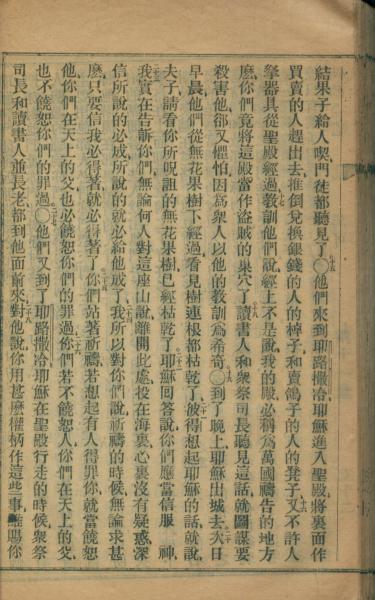 結果子給人喫門徒都聽見了○十五他們來到耶路撒冷耶穌進入聖殿將裏面作
買賣的人趕出去推倒兌換銀錢的人的棹子和賣鴿子的人的凳子十六又不許人
拏器具從聖殿經過十七教訓他們說經上不是說我的殿必稱爲萬國禱告的地方
麽你們竟將這殿當作盜賊的巢穴了十八讀書人和衆祭司長聽見這話就圖謀要
殺害他卻又懼怕因爲衆人以他的教訓爲希奇○十九到了晚上耶穌出城去二十次日
早晨他們從無花果樹下經過看見樹連根都枯乾了二十一彼得想起耶穌的話就說
夫子請看你所呪詛的無花果樹已經枯乾了二十二耶穌回答說你們應當信服神
二十三我實在告訴你們無論何人對這座山說離開此處投在海裏心裏沒有疑惑深
信所說的必成所說的就必給他成了二十四我所以對你們說祈禱的時候無論求甚
麽只要信我必得著就必得著了二十五你們站著祈禱若想起有人得罪你就當饒恕
他你們在天上的父也必饒恕你們的罪過二十六你們若不饒恕人你們在天上的父
也不饒恕你們的罪過○二十七他們又到了耶路撒冷耶穌在聖殿行走的時候衆祭
司長和讀書人並長老都到他面前來二十八對他說你用甚麽權柄作這些事誰賜你